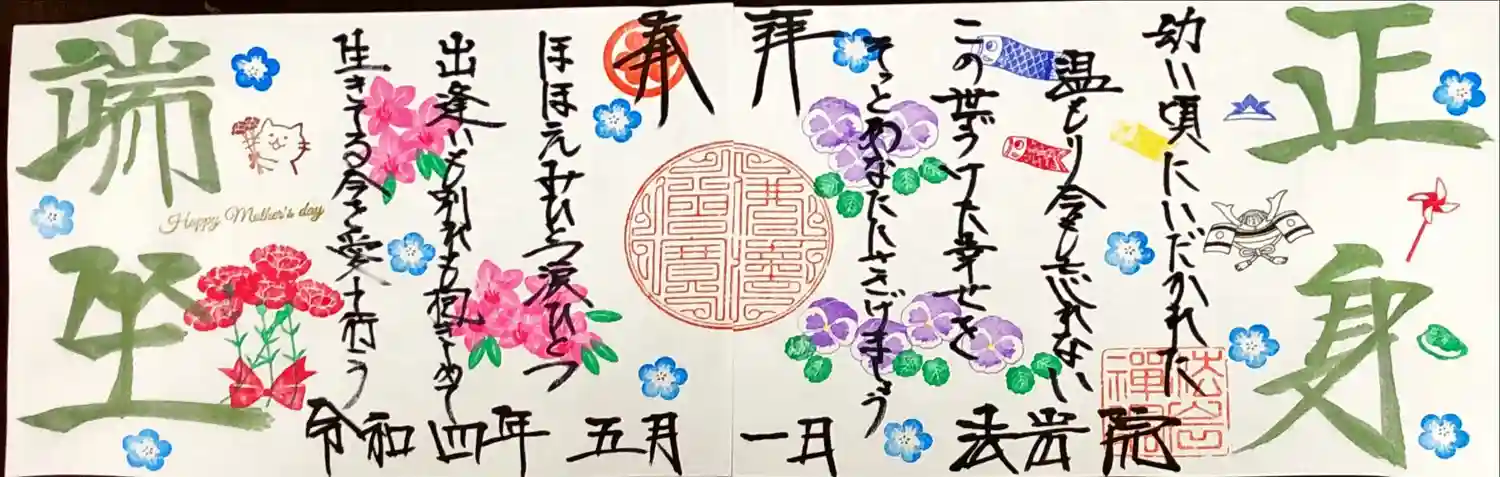 正身
幼い頃にいだかれた
温もり今も忘れない
この世でうけた幸せを
そっとあなたにささげましょう
奉拝
ほほえみひとつ涙ひとつ
出逢いも別れも抱きしめて
生きてる今を愛す行こう
端坐
Happy Mother's day
令和四年五月一日
法岩院